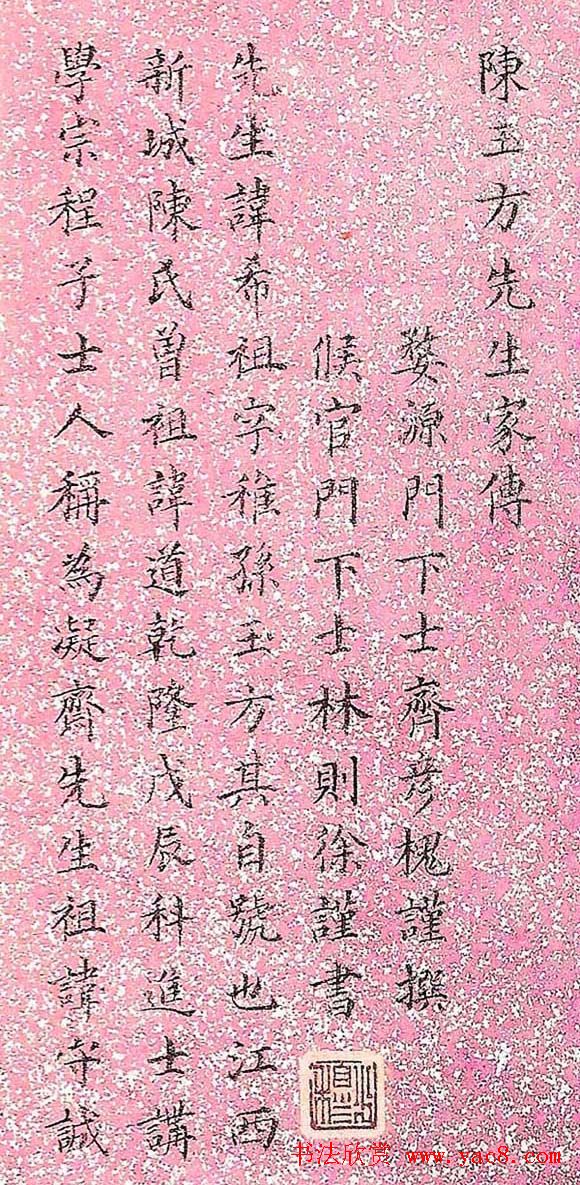 陳玉方先生家傳
婺源門下士齊彦槐謹撰
候官門下士林則徐謹書
先生諱希祖字稚孫玉方其自號也江西
新城陳氏曾祖諱道乾隆戊辰科進士講
學宗程子士人稱為凝齊先生祖諱守誠
书法欣赏 www.yac8.com